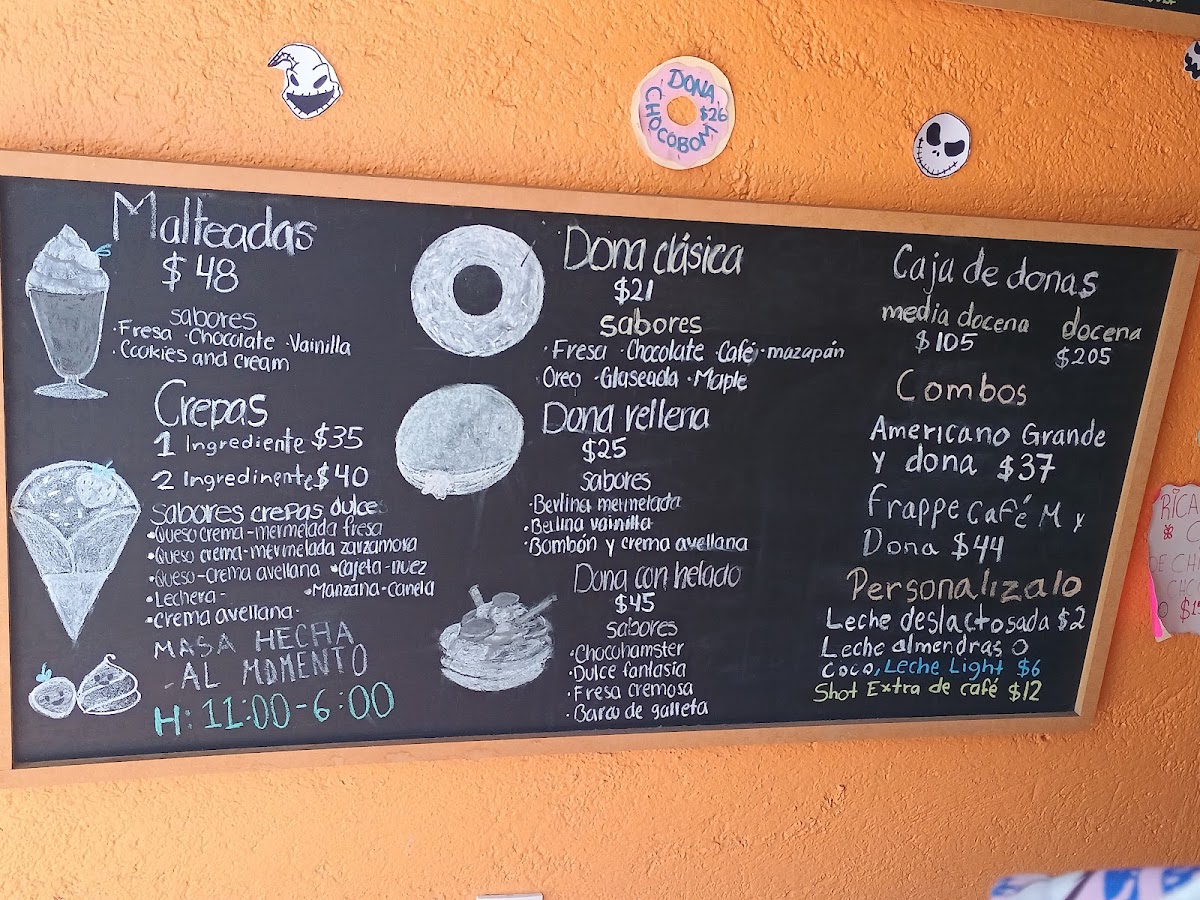 DONA
$26
CHOCOBOM
Malteadas
$48
sabores
·Fresa ·Chocolate ·Vainilla
·Cookies and cream
Crepas
1 Ingrediente $35
2 Ingredinente $40
Sabores crepas dulces
•Queso crema-mermelada fresa
•Queso crema-mermelada zarzamora
•Queso-crema avellana •Cajeta-nuez
•Lechera- •Manzana-canela
•crema avellana·
MASA HECHA
AL MOMENTO
H: 11:00-6:00
Dona clásica
$21
sabores
·Fresa ·Chocolate ·Café ·mazapán
Oreo ·Glaseada ·Maple
Dona rellena
$25
sabores
·Berlina mermelada
·Berlina vainilla
·Bombón y crema avellana
Dona con helado
$45
sabores
·Chocohamster
·Dulce fantasía
·Fresa cremosa
·Barco de galleta
Caja de donas
media docena docena
$105 $205
Combos
Americano Grande
y dona $37
Frappe café M y
Dona $44
Personalizalo
Leche deslactosada $2
Leche almendras o
coco, Leche Light $6
Shot Extra de café $12